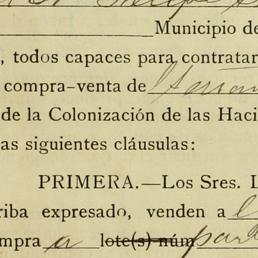 Municipio de
, todos capaces para contratar
compra-venta de
de la Colonización de las Haci
as siguientes cláusulas:
PRIMERA.—Los Sres. L
riba expresado, venden a
mpra a lote(s) núm